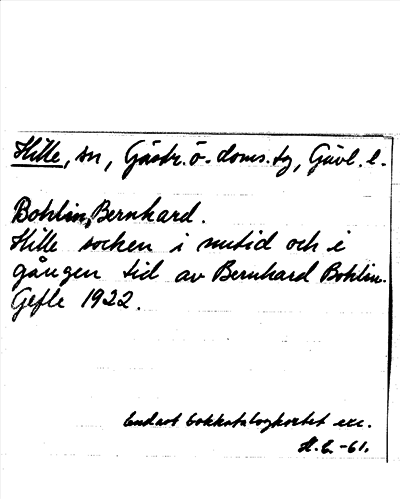 Hille, sn, Gästr. ö. doms. tg, Gävl. l.
Bohlin, Bernhard.
Hille socken i nutid och i
gången tid av Bernhard Bohlin.
Gefle 1922.
Endast bokkatalogkortet exc.
-61.